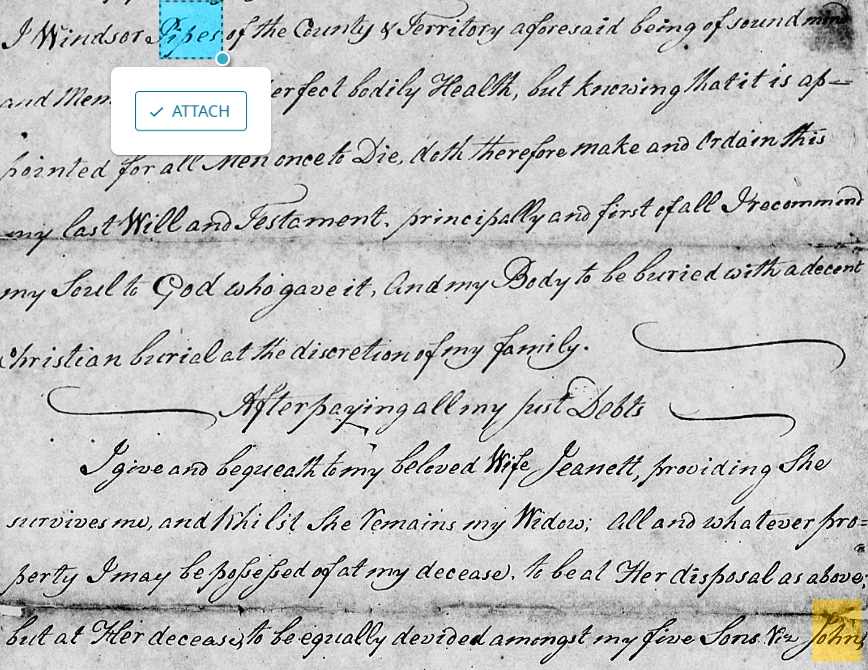 I Windsor Pipes of the County & Territory aforesaid being of sound mind
and Mem erfect bodily Health, but knowing that it is ap=
ATTACH
pointed for all Men once to Die, doth therefore make and Ordain this
my last Will and Testament. principally and first of all I recommend
my Soul to God who gave it, And my Body to be buried with a decent
Christian burial at the discretion of my family.
After paying all my just Debts
I give and bequeath to my beloved Wife Jeanett, providing She
survives me, and Whilst She remains my Widow; All and whatever pro=
perty I may be possessed of at my decease. to be at Her disposal as above;
but at Her decease, to be equally devided amongst my five Sons Viz John